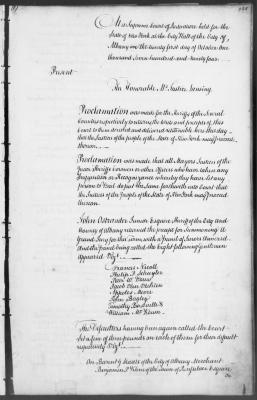 At a Supreme Court of Judicature held for the
State of New York at the City Hall of the City of
Albany on the twenty first day of October One
thousand seven hundred and ninety four
Present
The Honourable Mr Justice Lansing
Proclamation was made for the Sheriffs of the several
Counties respectively to return the Writs and precepts of this
Court to them directed and delivered returnable here this day
that the Justices of the people of the State of New York may proceed
thereon
Proclamation was made that all Mayors Justices of the
Peace Sheriffs Coroners or other Officers who have taken any
Inquisition or Recognizance whereby they have let any
person to Bail do put the same forthwith into Court that
the Justices of the People of the State of New York may proceed
thereon
John Ostrander Junior Esquire Sheriff of the City and
County of Albany returned the precept for summoning a
Grand Jury for this Term with a pannel of Jurors thereunto
And the pannel being called the Eight following Gentlemen
Appeared Vizt
Francis Nicoll
Philip P. Schuyler
Jacob Van
Moore
John Bogley
Timothy
William Mc
The Defaulters having been again called the Court
set a fine of three pounds on each of them for their default
respectively Vizt
of the City of Albany Merchant
Benjamin of the Town of Esquire